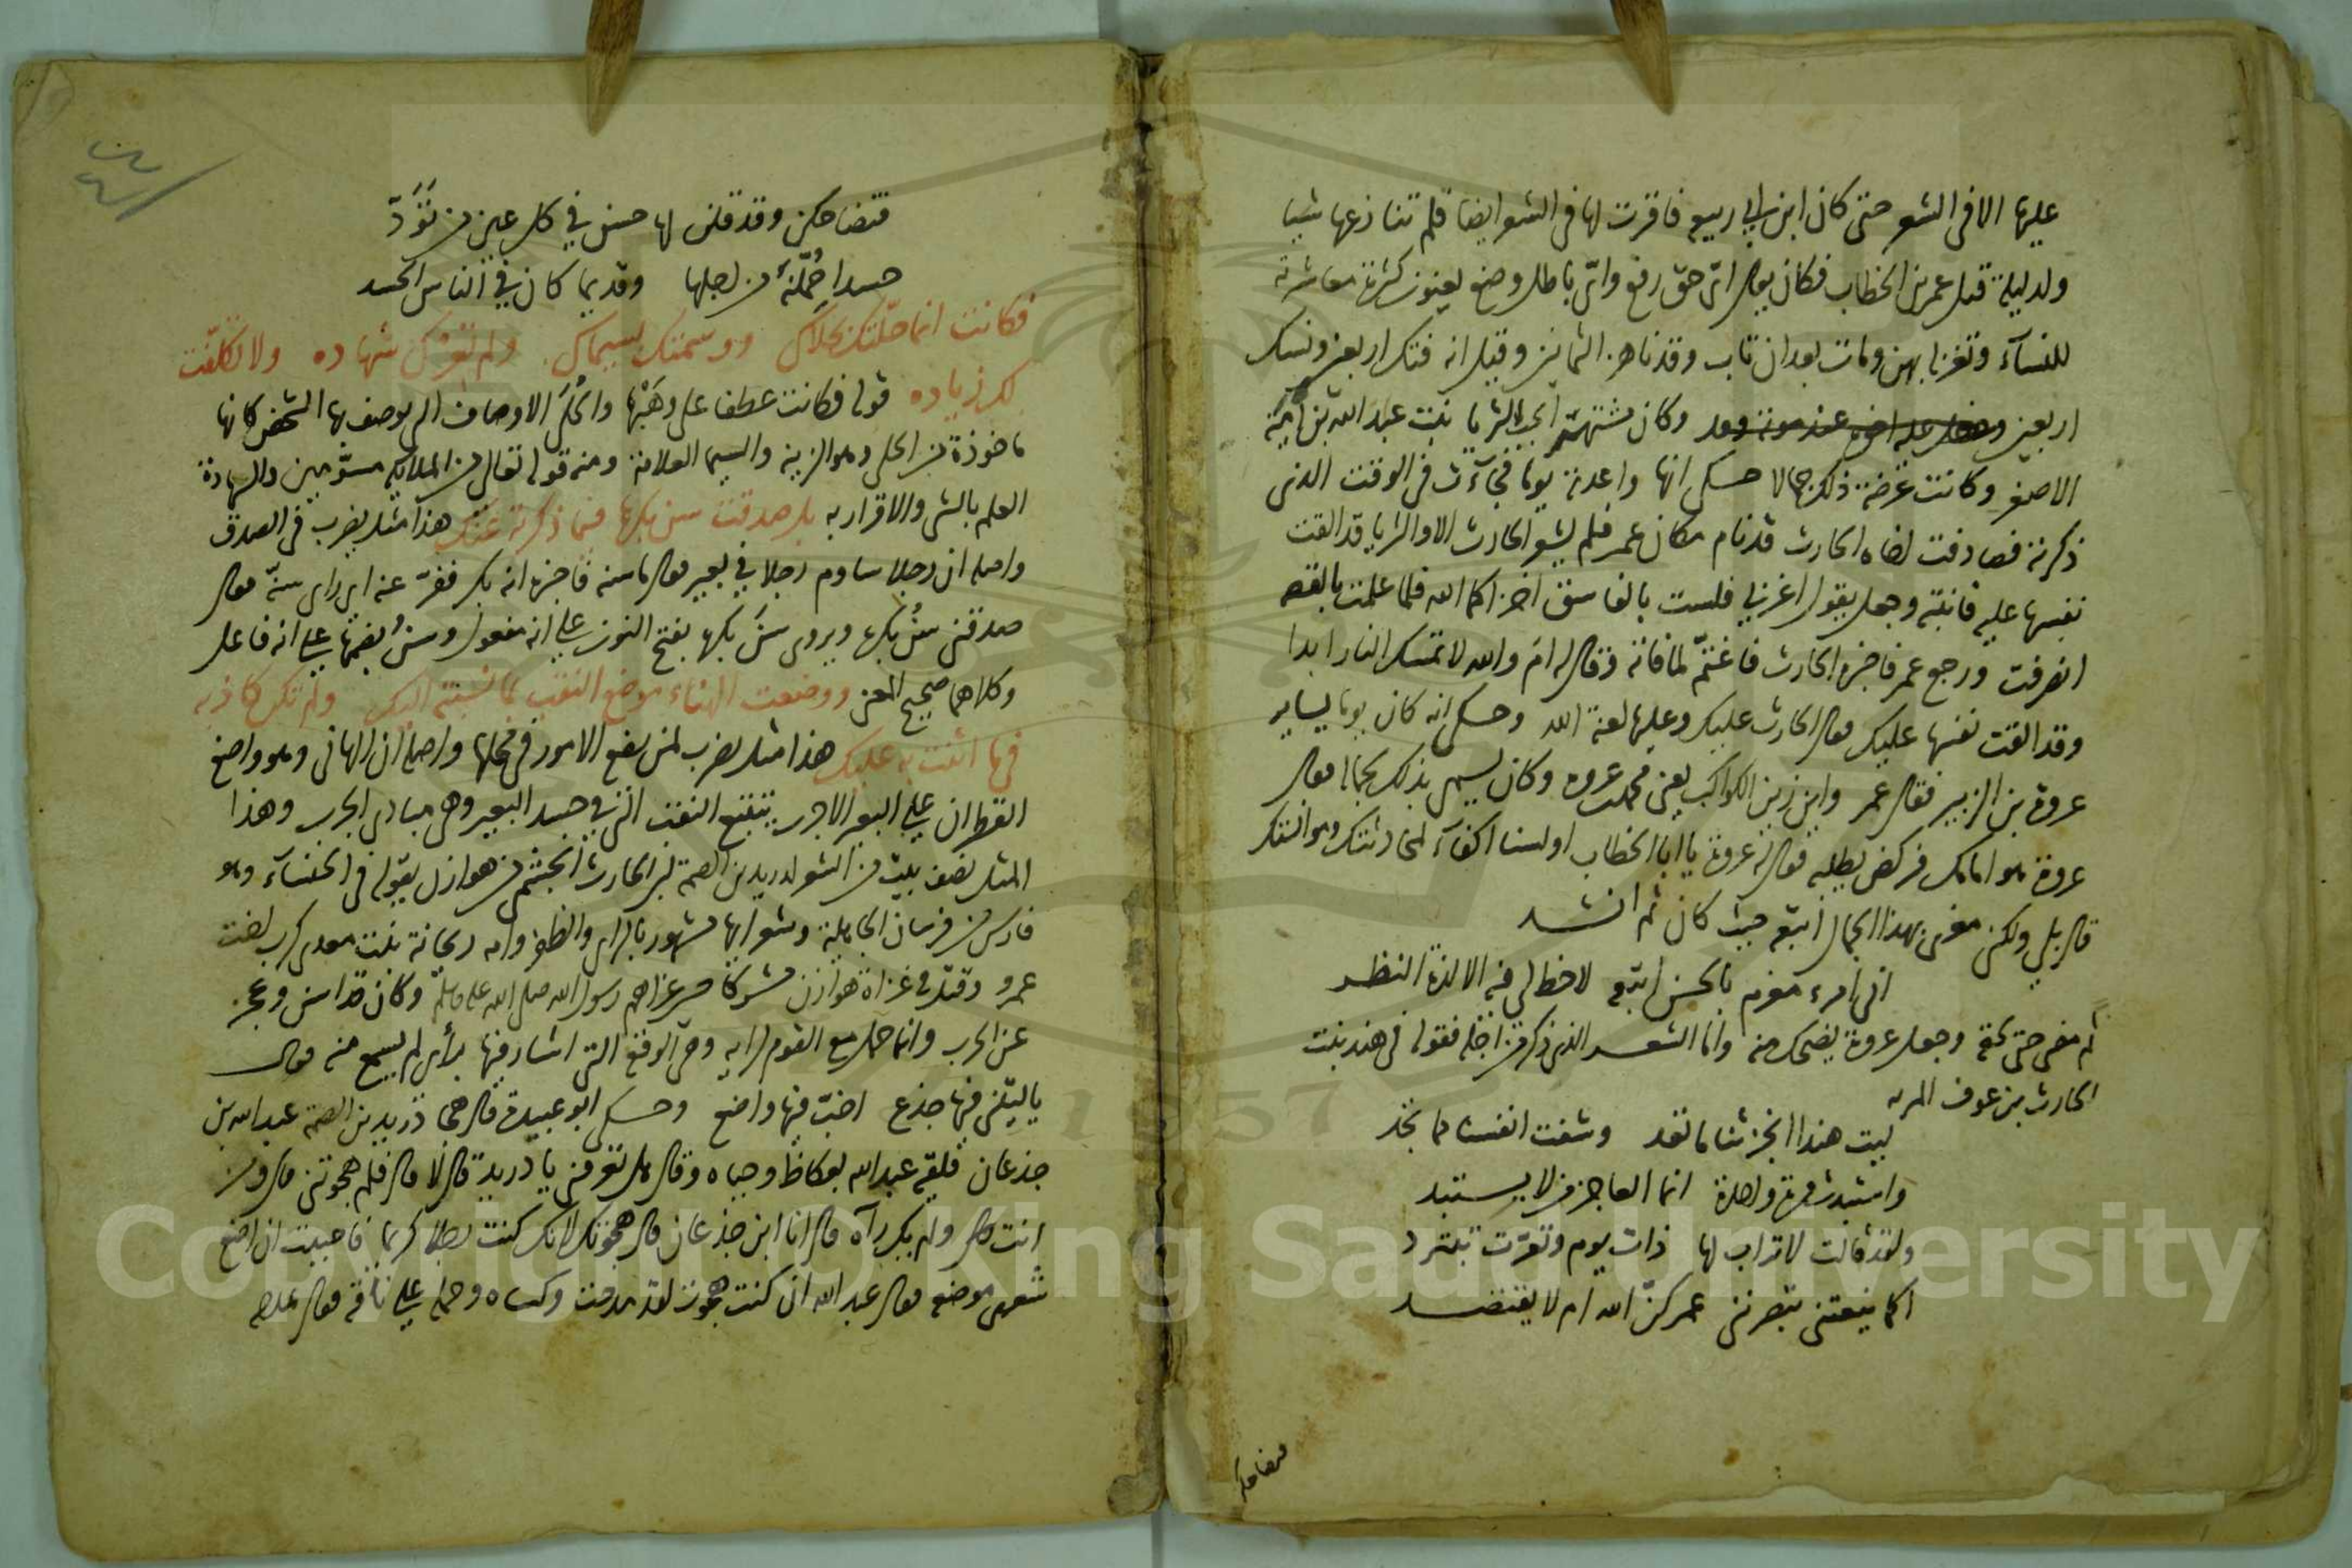 عليها الا في الشعر حتى كان ابن ابي ربيعه فاقرت لها في الشعر ايضا فلم تنازعها شيا
ولد ليلة قتل عمر بن الخطاب فكان يقال ايّ حق رفع وايّ باطل وضع يعنون كثرة معاشرته
للنسآء وتغزله بهن ومات بعد ان تاب وقد ناهز الثمانين وقيل انه فتك اربعين ونسك
اربعين وكان مشتهرا بحب الثريا بنت عبد الله بن امية
الاصغر وكانت عرضة ذلك جمالا حكى انها واعدته يوما فجآءت في الوقت الذي
ذكرته فصادفت اخاه الحارث قد نام مكان عمر فلم يشعر الحارث الا والثريا قد القت
نفسها عليه فانتبه وجعل يقول اغربي فلست بالفاسق اخزاكما الله فلما علمت بالقصه
انصرفت ورجع عمر فاخبره الحارث فاغتمّ لما فاته وقال له ام والله لا تمسك النار ابدا
وقد القت نفسها عليك فقال الحارث عليك وعليها لعنة الله وحكى انه كان يوما يساير
عروة بن الزبير فقال عمر واين زين الكواكب يعنى محمد بن عروه وكان يسمى بذلك لجماله فقال
عروة هو امامك فركض يطلبه فقال له عروة يا ابا الخطاب اولسنا اكفآء لمحادثتك وموانستك
قال بلى ولكني مغرى بهذا الجمال اتبعه حيث كان ثم انشد
اني امرء مغرم بالحسن اتبعه لا حظ لي فيه الا لذة النظر
ثم مضى حتى لحقه وجعل عروة يضحك منه واما الشعر الذي ذكر من اجله فقوله في هند بنت
الحارث بن عوف المريه
ليت هندا انجزتنا ما تعد وشفت انفسنا مما تجد
واستبدت مرة واحدة انما العاجز من لا يستبد
ولقد قالت لاتراب لها ذات يوم وتعرّت تبترد
اكما ينعتني تبصرنني عمركنّ الله ام لا يقتصد
فتضاحكن
فتضاحكن وقد قلن لها حسن في كل عين من تَوَدّ
حسدا حُمّلنَهُ من اجلها وقديما كان في الناس الحسد
فكانت انما حلّتك بحلاك ووسمتك بسيماك ولم تُعِرك شهاده ولا تكلّفت
لك زياده قوله فكانت عطف على وهَبْها والحُلَى الاوصاف التي يوصف بها الشخص كانها
ماخوذة من الحلى وهو الزينه والسيما العلامة ومنه قوله تعالى من الملايكه مسوّمين والشهادة
العلم بالشى والاقرار به بل صدقت سن بكرها فيما ذكرته عنك هذا مثل يضرب في الصدق
واصله ان رجلا ساوم رجلا في بعير فقال ما سنه فاخبره انه بكر ففرّ عنه اي راى سنّه فقال
صدقني سنُّ بكره ويروى سنَّ بكره بفتح النون على انه مفعول وسنُّ بضمها على انه فاعل
وكلاهما صحيح المعنى ووضعت الهناء موضع النقب بما نسبته اليك ولم تكن كاذبه
فيما اثنت به عليك هذا مثل يضرب لمن يضع الامور في محلها واصله ان الهاني وهو واضع
القطران على البعير الاجرب يتتبع النقب التي في جسد البعير وهي مبادى الجرب وهذا
المثل نصف بيت من الشعر لدريد بن الصمه بن الحارث الجشمي من هوازن يقوله في الخنسآء وهو
فارس من فرسان الجاهلية وشعرايها مشهور بالراى والظفر وامه ريحانة بنت معدى كرب اخت
عمرو وقتل في غزاة هوازن مشركا حين غزاهم رسول الله صلى الله عليه وسلم وكان قد اسن وعجز
عن الحرب وانما حمل مع القوم لرايه وهي الوقعه التي اشار فيها برأى لم يسمع منه فقال
يا ليتني فيها جذع اخبّ فيها واضع وحكى ابو عبيدة قال هجا دريد بن الصمه عبد الله بن
جذعان فلقيه عبد الله بعكاظ وحياه وقال هل تعرفني يا دريد قال لا قال فلم هجوتني قال ومن
انت قال ولم يكن رآه قال انا ابن جذعان قال هجوتك لانك كنت رجلا كريما فاحببت ان اضع
شعرى موضعه فقال عبد الله ان كنت هجوت لقد مدحت وكساه وحمله على ناقه فقال يمدحه